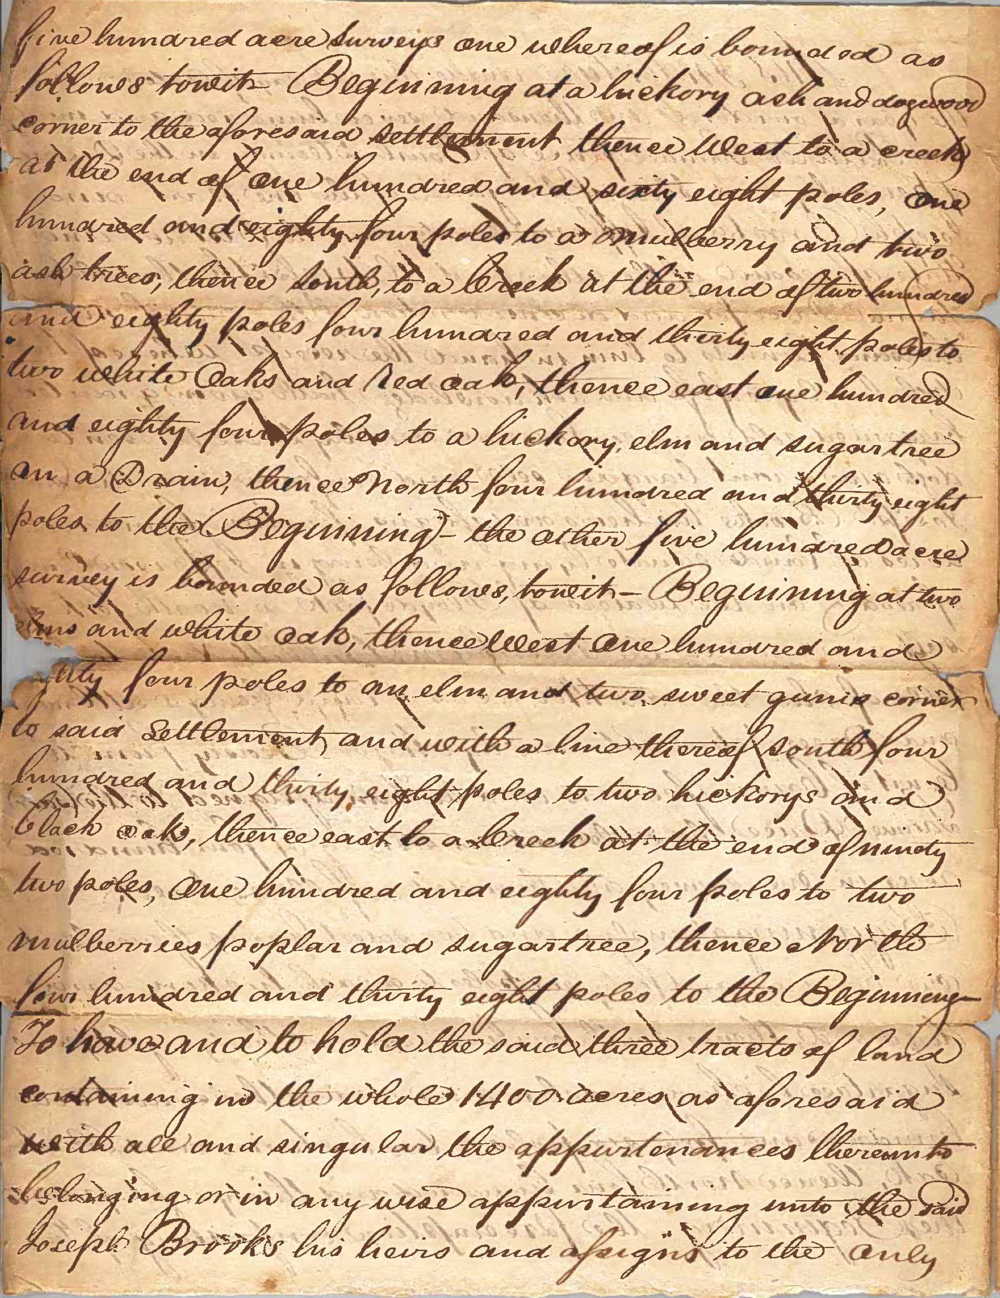 five hundred acre surveys one whereof is bounded as
follows towit Beginning at a hickory ash and dogwood
corner to the aforesaid settlement thence West to a creek
at the end of one hundred and sixty eight poles, one
hundred and eighty four poles to a mulberry and two
ash trees, thence south, to a Creek at the end of two hundred
and eighty poles four hundred and thirty eight poles to
two white Oaks and Red oak, thence east one hundred
and eighty four poles to a hickory, elm and sugartree
on a Drain, thence North four hundred and thirty eight
poles to the Beginning - the other five hundred acre
survey is bounded as follows, towit - Beginning at two
elms and white oak, thence West one hundred and
ghty four poles to an elm and two sweet gums corner
to said Settlement, and with a line thereof south four
hundred and thirty eight poles to two hickorys and
black oak, thence east to a Creek at the end of ninety
two poles, One hundred and eighty four poles to two
mulberries poplar and sugartree, thence North
four hundred and thirty eight poles to the Beginning
To have and to hold the said three tracts of land
containing in the whole 1400 acres as aforesaid
with all and singular the appurtenances thereunto
belonging or in any wise appurtaining unto the said
Joseph Brooks his heirs and assigns to the only